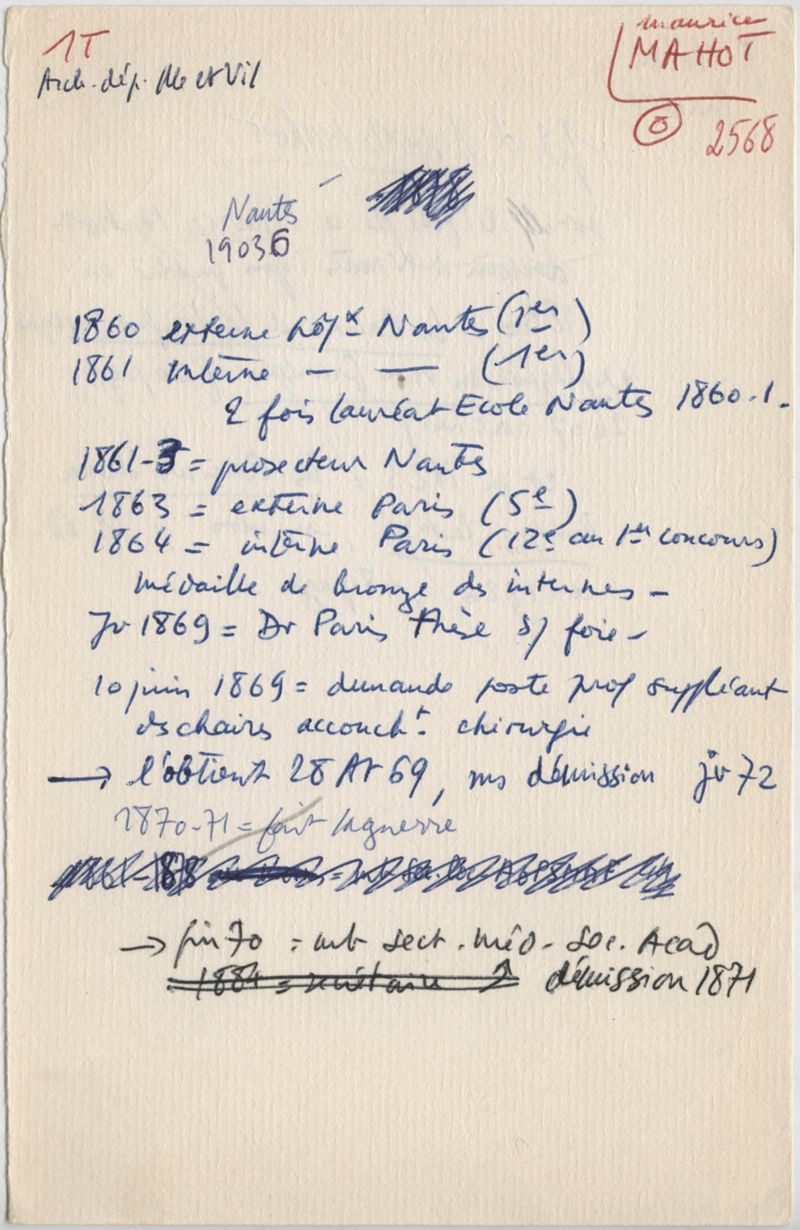 1T
Arch. dép. Ille et Vil
Maurice
MAHOT
2568
Nantes
19036
1860 externe hôpx Nantes (1er)
1861 interne — — (1er)
2 fois lauréat Ecole Nantes 1860.1.
1861-3 = prosecteur Nantes
1863 = externe Paris (5e)
1864 = interne Paris (12e au 1er concours)
médaille de bronze des internes –
Jv 1869 = Dr Paris Thèse s/ foie –
10 juin 1869 = demande poste prof suppléant
ds chaires accoucht. chirurgie
→ l'obtient 28 At 69, ms démission jv 72
1870-71 = fait la guerre
→ fin 70 = mb sect. méd. Soc. Acad
1884 = secrétaire démission 1871